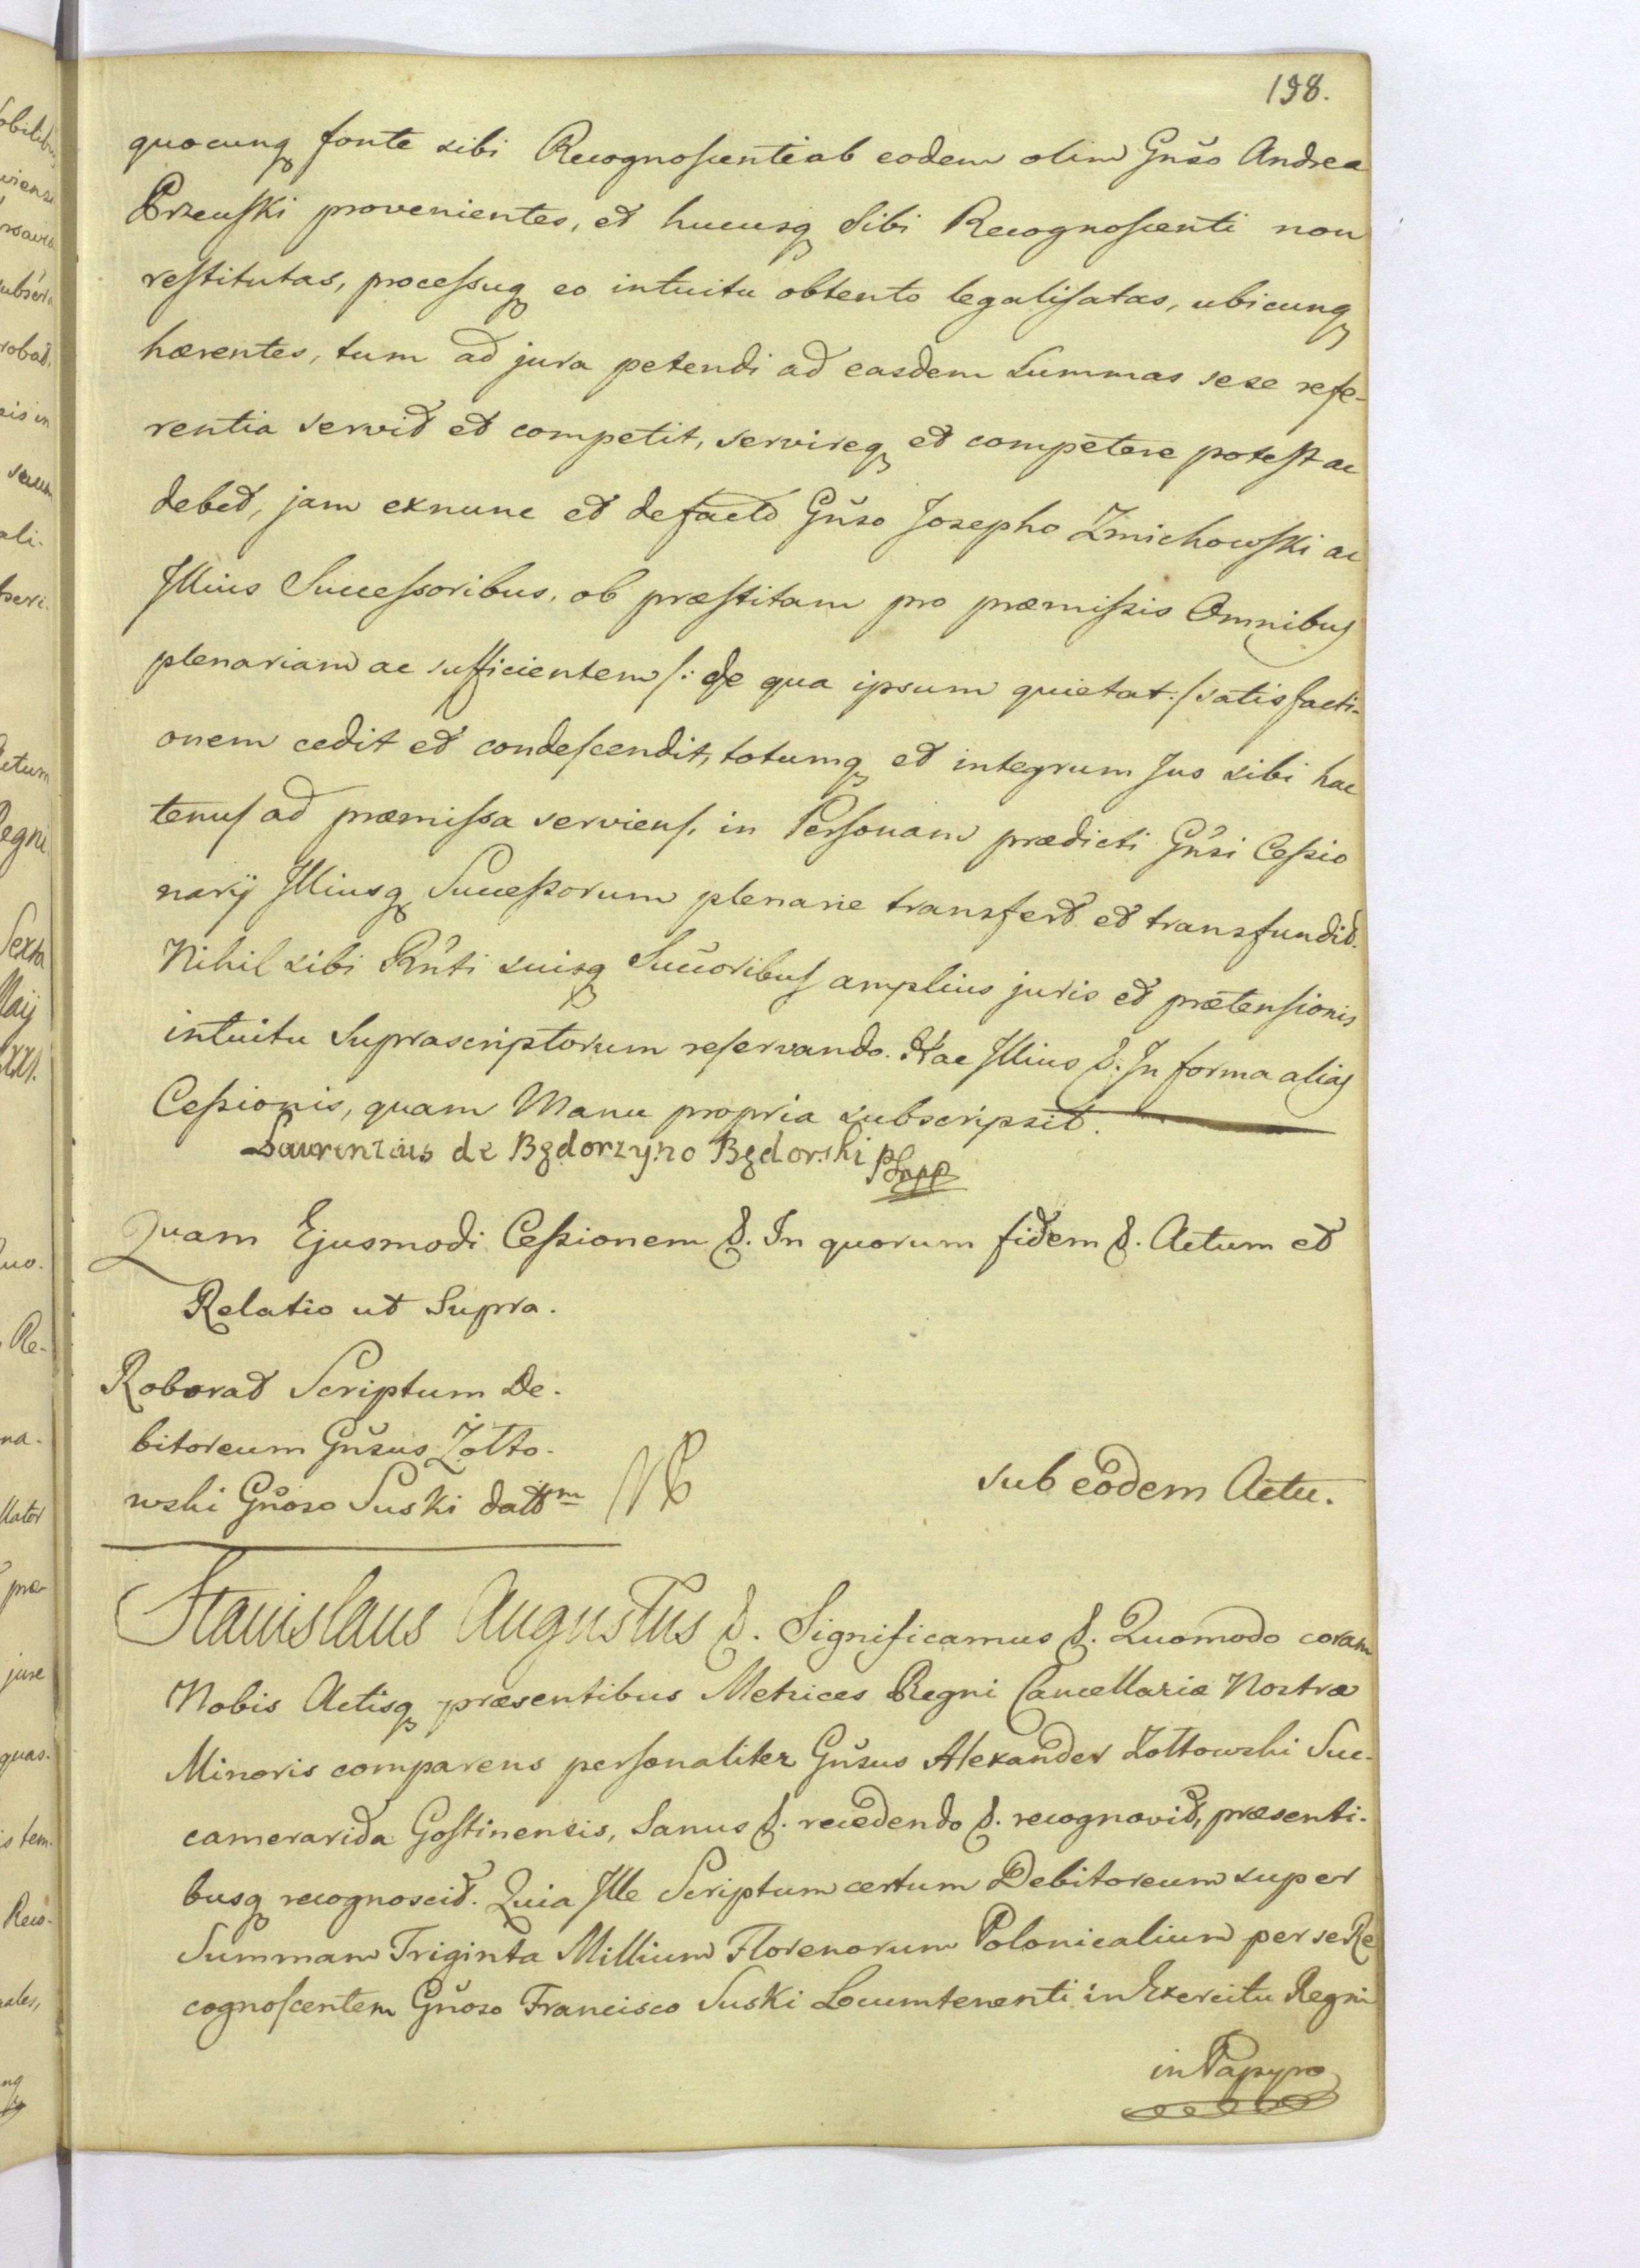 198.
quocunq fonte sibi Recognoscenti ab eodem olim Gnŏso Andrea
Brzeuski provenientes, et hucusq Sibi Recognoscenti non
restitutas, processuq eo intuitu obtento legalisatas, ubicunq
hærentes, tum ad jura petendi ad easdem Summas sese refe-
rentia servit et competit, servireq et competere potest ac
debet, jam exnunc et defacto Gnŏso Josepho Zmichowski ac
Illius Successoribus, ob præstitam pro præmissis Omnibus
plenariam ac sufficientem /: de qua ipsum quietat :/ satisfacti-
onem cedit et condescendit, totumq et integrum Jus sibi hac
tenus ad præmissa serviens, in Personam prædicti Gnŏsi Cessio
narij Illiusq Successorum plenarie transfert et transfundit.
Nihil sibi Rn̆ti suisq Succ̆oribus amplius juris et prætensionis
intuitu Suprascriptorum reservando. Hac Illius &. In forma alias
Cessionis, quam Manu propria subscripsit.
Laurentius de Bądorzyno Bądorski
Quam Ejusmodi Cessionem &. In quorum fidem &. Actum et
Relatio ut Supra.
Roborat Scriptum De-
bitoreum Gnŏsus Żołto-
wski Gnŏso Suski dattm
sub eodem Actu.
Stanislaus Augustus &. Significamus &. Quomodo coram
Nobis Actisq præsentibus Metrices Regni Cancellariæ Nostræ
Minoris comparens personaliter Gnŏsus Alexander Żołtowski Suc-
camerarida Gostinensis, Sanus &. recedendo &. recognovit, præsenti-
busq recognoscit. Quia Ille Scriptum certum Debitoreum super
Summam Triginta Millium Florenorum Polonicalium per se Re
cognoscentem Gnŏso Francisco Suski Locumtenenti in Exercitu Regni
in Papyro